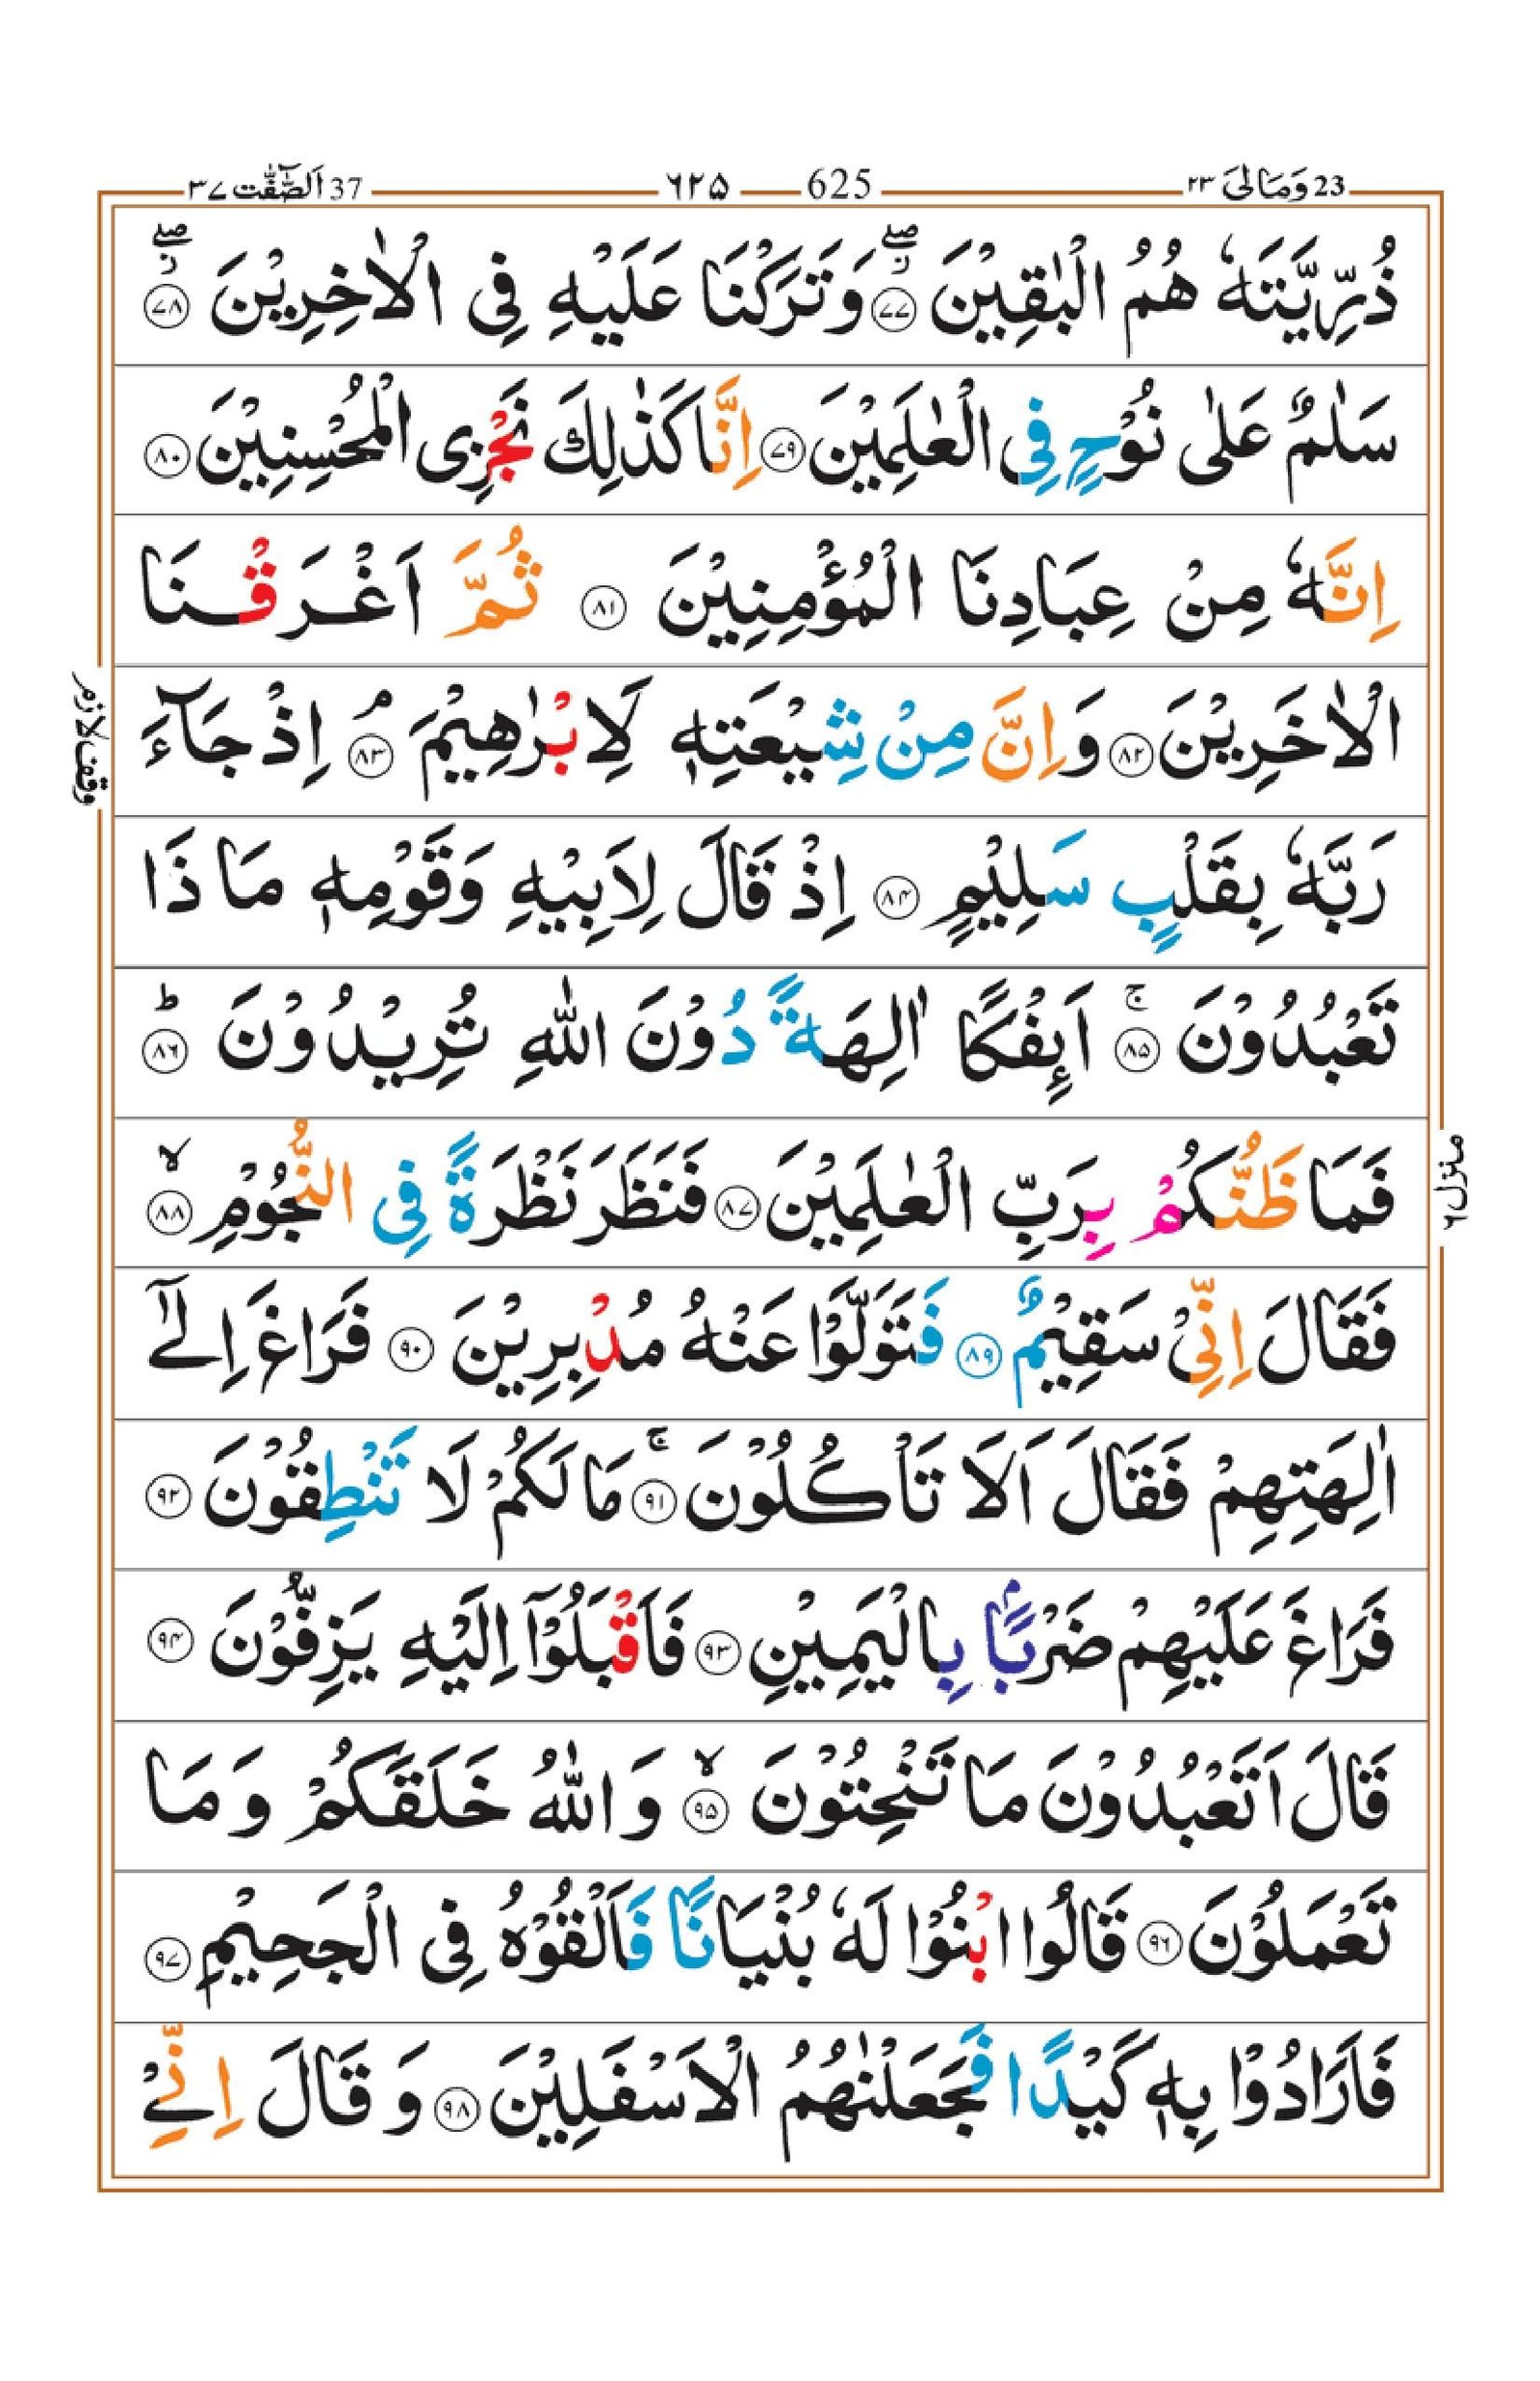 23 وَمَالِیَ ٢٣ 625 ٦٢٥ 37 اَلصّٰٓفّٰت ٣٧
ذُرِّيَّتَهٗ هُمُ الْبٰقِيْنَ ۖ٧٧ وَتَرَكْنَا عَلَيْهِ فِى الْاٰخِرِيْنَ ۖ٧٨
سَلٰمٌ عَلٰى نُوْحٍ فِى الْعٰلَمِيْنَ ٧٩ اِنَّا كَذٰلِكَ نَجْزِى الْمُحْسِنِيْنَ ٨٠
اِنَّهٗ مِنْ عِبَادِنَا الْمُؤْمِنِيْنَ ٨١ ثُمَّ اَغْرَقْنَا
الْاٰخَرِيْنَ ٨٢ وَاِنَّ مِنْ شِيْعَتِهٖ لَاِبْرٰهِيْمَ ۘ٨٣ اِذْ جَآءَ
وقف لازم
رَبَّهٗ بِقَلْبٍ سَلِيْمٍ ٨٤ اِذْ قَالَ لِاَبِيْهِ وَقَوْمِهٖ مَاذَا
تَعْبُدُوْنَ ۚ٨٥ اَئِفْكًا اٰلِهَةً دُوْنَ اللّٰهِ تُرِيْدُوْنَ ؕ٨٦
فَمَا ظَنُّكُمْ بِرَبِّ الْعٰلَمِيْنَ ٨٧ فَنَظَرَ نَظْرَةً فِى النُّجُوْمِ ۙ٨٨
منزل ٦
فَقَالَ اِنِّىْ سَقِيْمٌ ٨٩ فَتَوَلَّوْا عَنْهُ مُدْبِرِيْنَ ٩٠ فَرَاغَ اِلٰٓى
اٰلِهَتِهِمْ فَقَالَ اَلَا تَاْكُلُوْنَ ۚ٩١ مَا لَكُمْ لَا تَنْطِقُوْنَ ٩٢
فَرَاغَ عَلَيْهِمْ ضَرْبًۢا بِالْيَمِيْنِ ٩٣ فَاَقْبَلُوْٓا اِلَيْهِ يَزِفُّوْنَ ٩٤
قَالَ اَتَعْبُدُوْنَ مَا تَنْحِتُوْنَ ۙ٩٥ وَاللّٰهُ خَلَقَكُمْ وَمَا
تَعْمَلُوْنَ ٩٦ قَالُوا ابْنُوْا لَهٗ بُنْيَانًا فَاَلْقُوْهُ فِى الْجَحِيْمِ ٩٧
فَاَرَادُوْا بِهٖ كَيْدًا فَجَعَلْنٰهُمُ الْاَسْفَلِيْنَ ٩٨ وَقَالَ اِنِّىْ